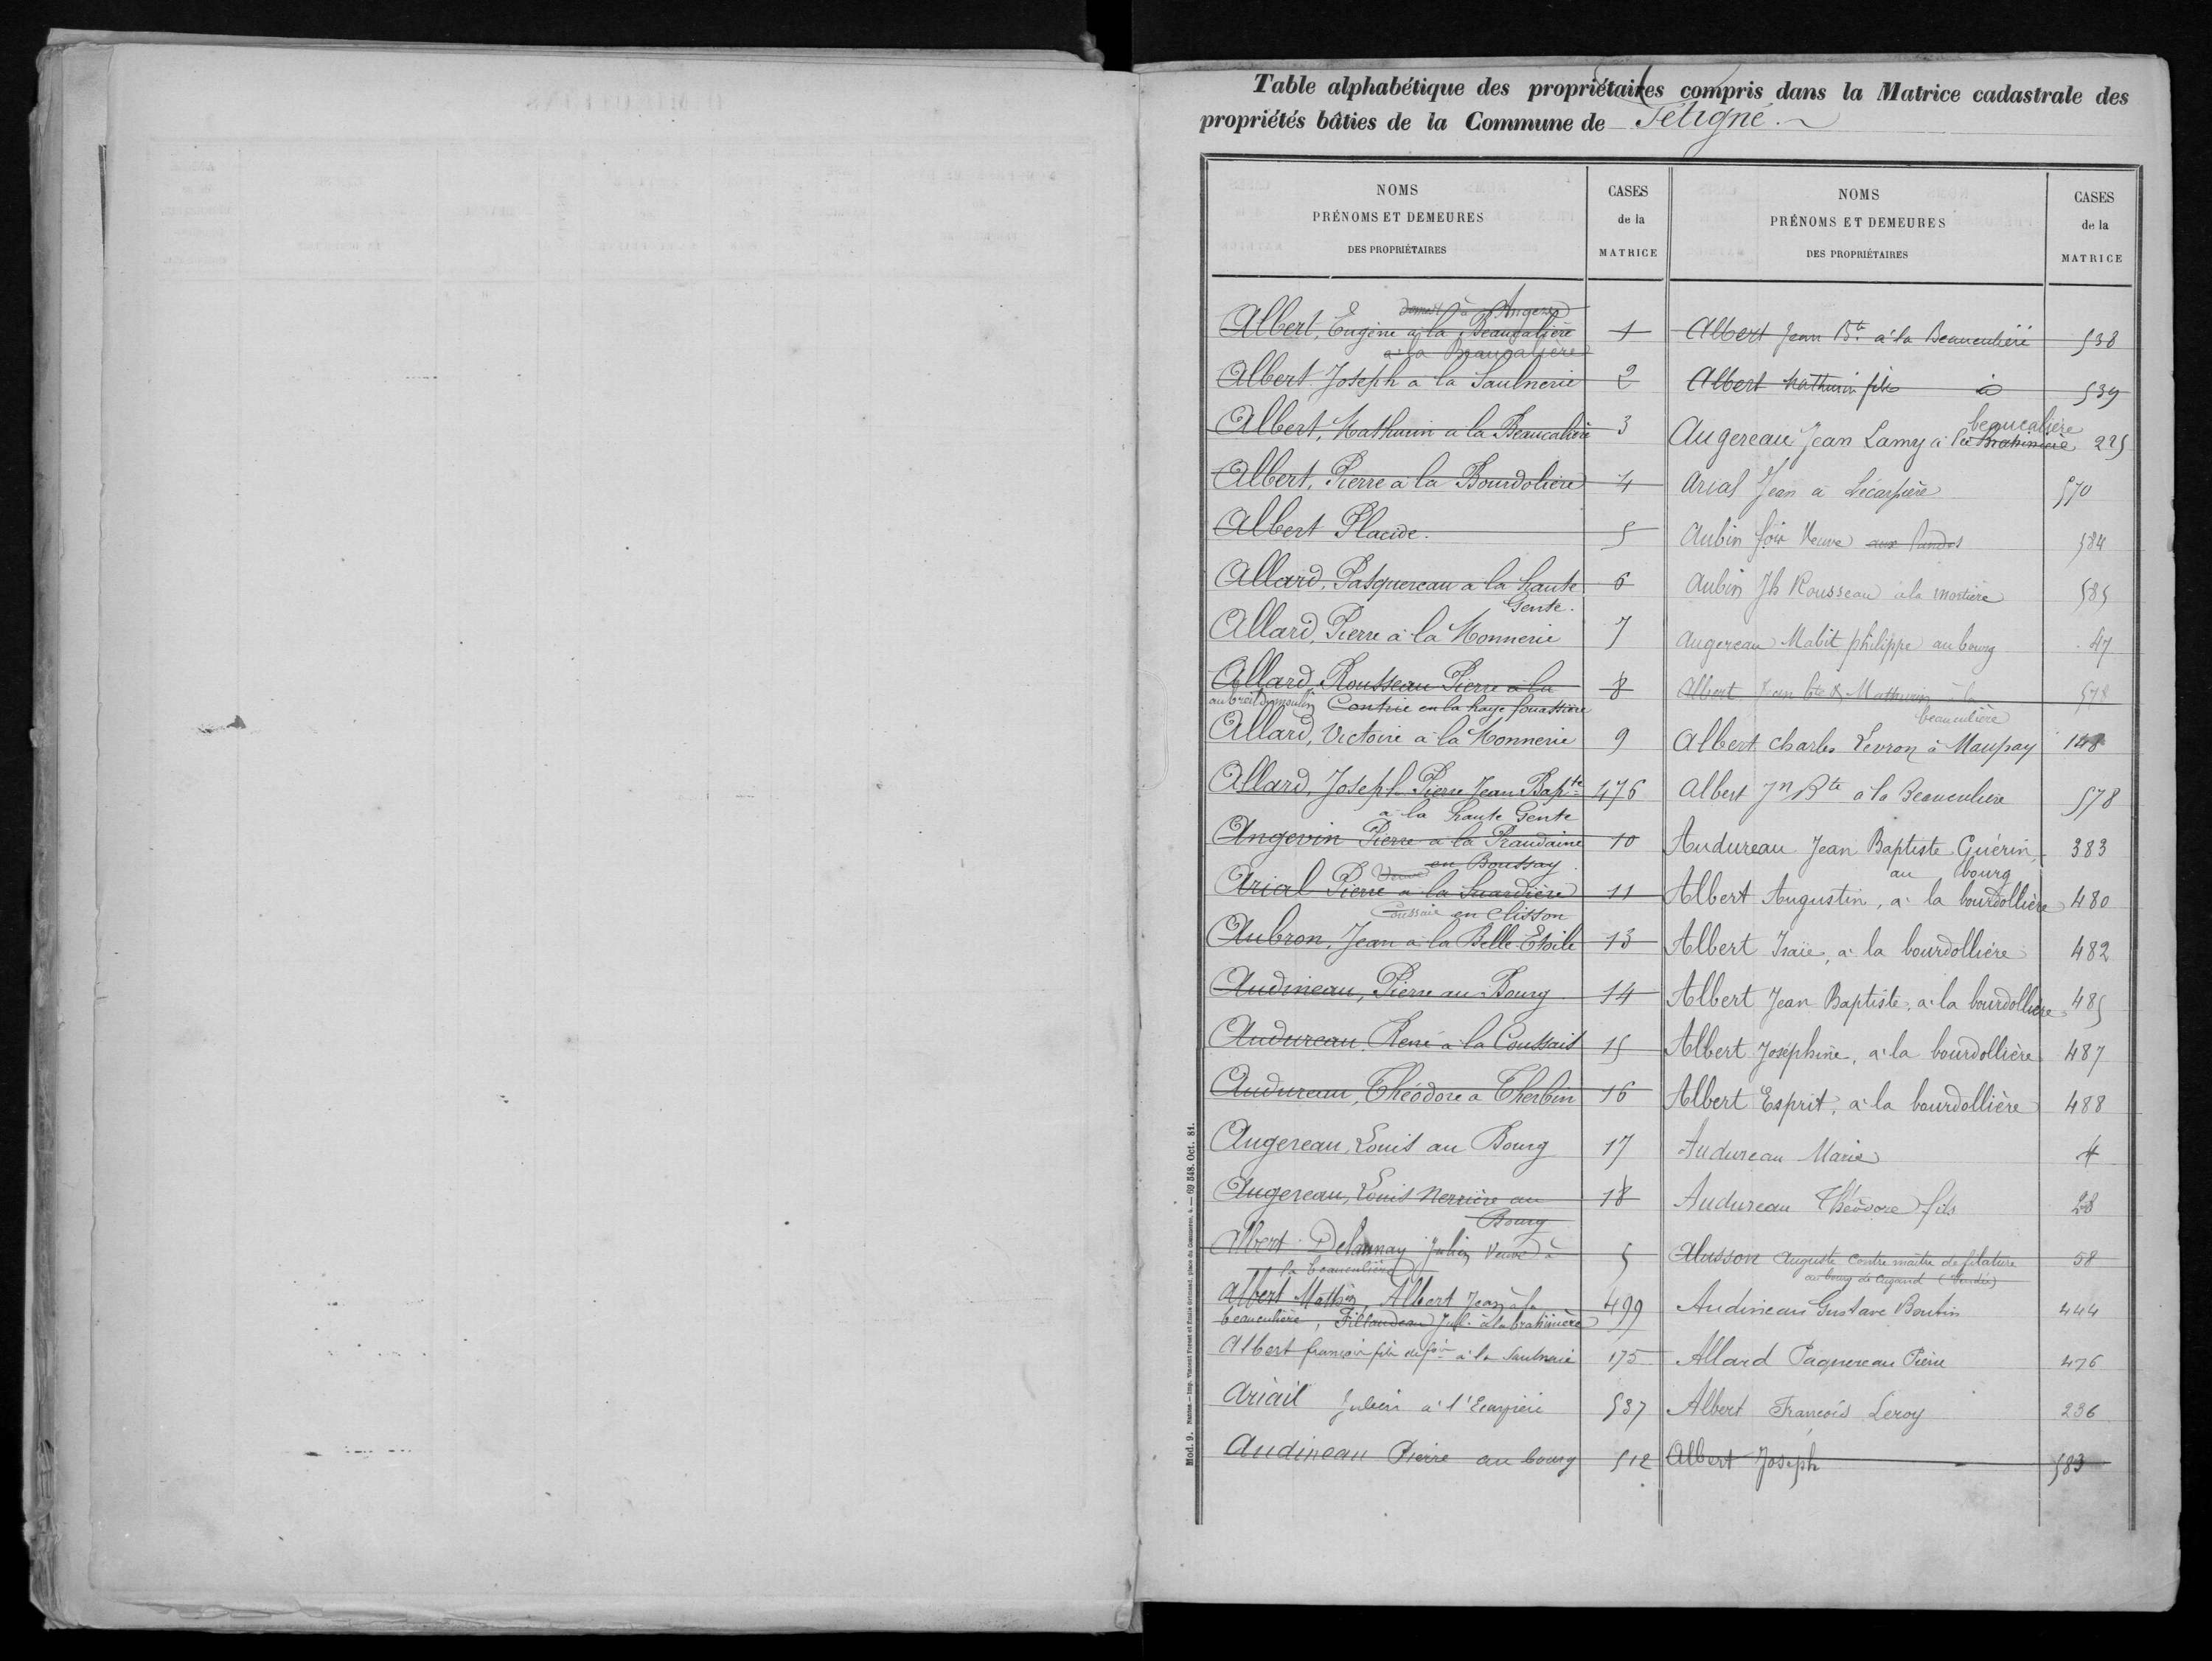 Table alphabétique des propriétaires compris dans la Matrice cadastrale des
propriétés bâties de la Commune de Gétigné
NOMS
PRÉNOMS ET DEMEURES
DES PROPRIÉTAIRES
CASES
de la
MATRICE
à Angers
Albert, Eugène à la Beaucalière 1
à la Beaucalière
Albert Joseph à la Saulnerie 2
Albert, Mathurin à la Beaucalière 3
Albert, Pierre à la Bourdolière 4
Albert Placide. 5
Allard, Pasquereau à la haute 6
Gente.
Allard, Pierre à la Monnerie 7
Allard, Rousseau Pierre à la 8
au breil du moulin Contrie en la haye fouassière
Allard, Victoire à la Monnerie 9
Allard, Joseph Pierre Jean Bapte 476
à la haute Gente
Angevin Pierre à la Praudaine 10
en Boussay
Arial Pierre Veuve à la Suardière 11
Coussaie en Clisson
Aubron, Jean à la Belle Etoile 13
Audineau, Pierre au Bourg 14
Audureau, René à la Coussais 15
Audureau, Théodore à Cherbin 16
Augereau, Louis au Bourg 17
Augereau, Louis Nerrière au 18
Bourg
Albert Delaunay Julien Veuve à 5
la beauculière
Albert Mathin, Albert Jean à la 499
beauculière, Fillaudeau Jul. à la brahinière
Albert françois fils de foix à la Saulnerie 175
Ariail Julien à l'Ecarpière 537
Audineau Pierre au bourg 512
NOMS
PRÉNOMS ET DEMEURES
DES PROPRIÉTAIRES
CASES
de la
MATRICE
Albert Jean Bte à la Beauculière 538
Albert Mathurin fils d 539
beaucalière
Augereau Jean Lamy à la Brahinière 225
Arial Jean à Lécarpière 570
Aubin foix Veuve aux landes 584
Aubin Jh Rousseau à la mortière 585
Augereau Mabit philippe au bourg 47
Albert Jean bte & Mathurin à la 578
beauculière
Albert Charles Levron à Maupay 148
Albert Jn Bte à la Beauculière 578
Audureau Jean Baptiste Guérin, 383
au bourg
Albert Augustin, à la bourdollière 480
Albert Isaïe, à la bourdollière 482
Albert Jean Baptiste, à la bourdollière 485
Albert Joséphine, à la bourdollière 487
Albert Esprit, à la bourdollière 488
Audureau Marie 4
Audureau Théodore fils 28
Alusson Auguste Contre maître de filature 58
au bourg de Cugand (Vendée)
Audineau Gustave Boutin 444
Allard Paquereau Pierre 476
Albert François Leroy 236
Albert Joseph 583
Mod. 9. Nantes. — Imp. Vincent Forest et Emile Grimaud, place du Commerce, 4. — 69 548. Oct. 81.